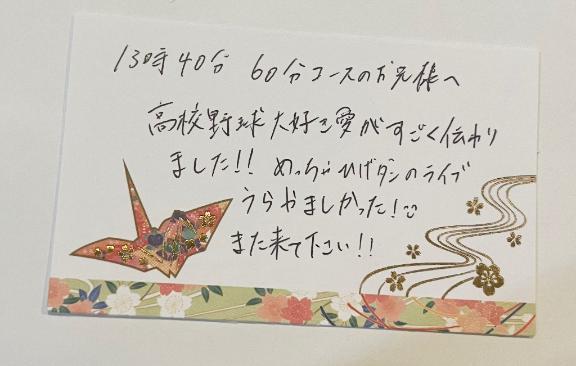 13時40分 60分コースのお兄様へ
高校野球大好き愛がすごく伝わり
ました!! めっちゃひげダンのライブ
うらやましかった!
また来て下さい!!